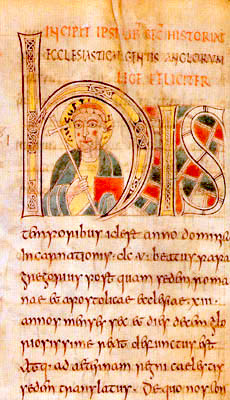 INCIPIT IPSIUS SEC HISTORIAE
ECCLESIASTICAE GENTIS ANGLORUM
LIGE FELICITER
his
temporibus id est anno dominicae
incarnationis dc u beatus papa
gregorius post quam sedem roma
nae & apostolicae ecclesiae xiii
annos menses sex & dies decem glo
riosissime rexit defunctus est
atq; ad aeternam regni caelestis
sedem translatus. De quo nos